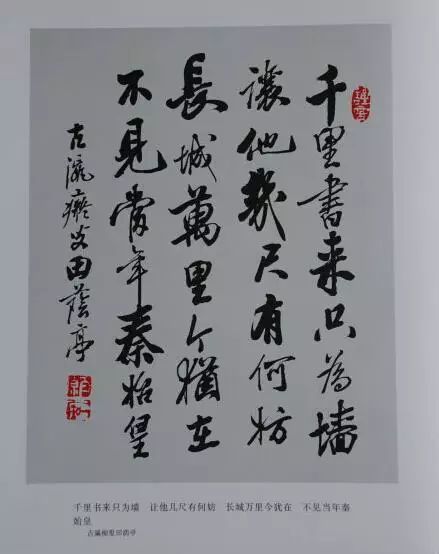 千里書来只為墻
讓他幾尺有何妨
長城萬里今猶在
不見當年秦始皇
古瀛癡叟田蔭亭
千里书来只为墙 让他几尺有何妨 长城万里今犹在 不见当年秦
始皇
古瀛痴叟田荫亭